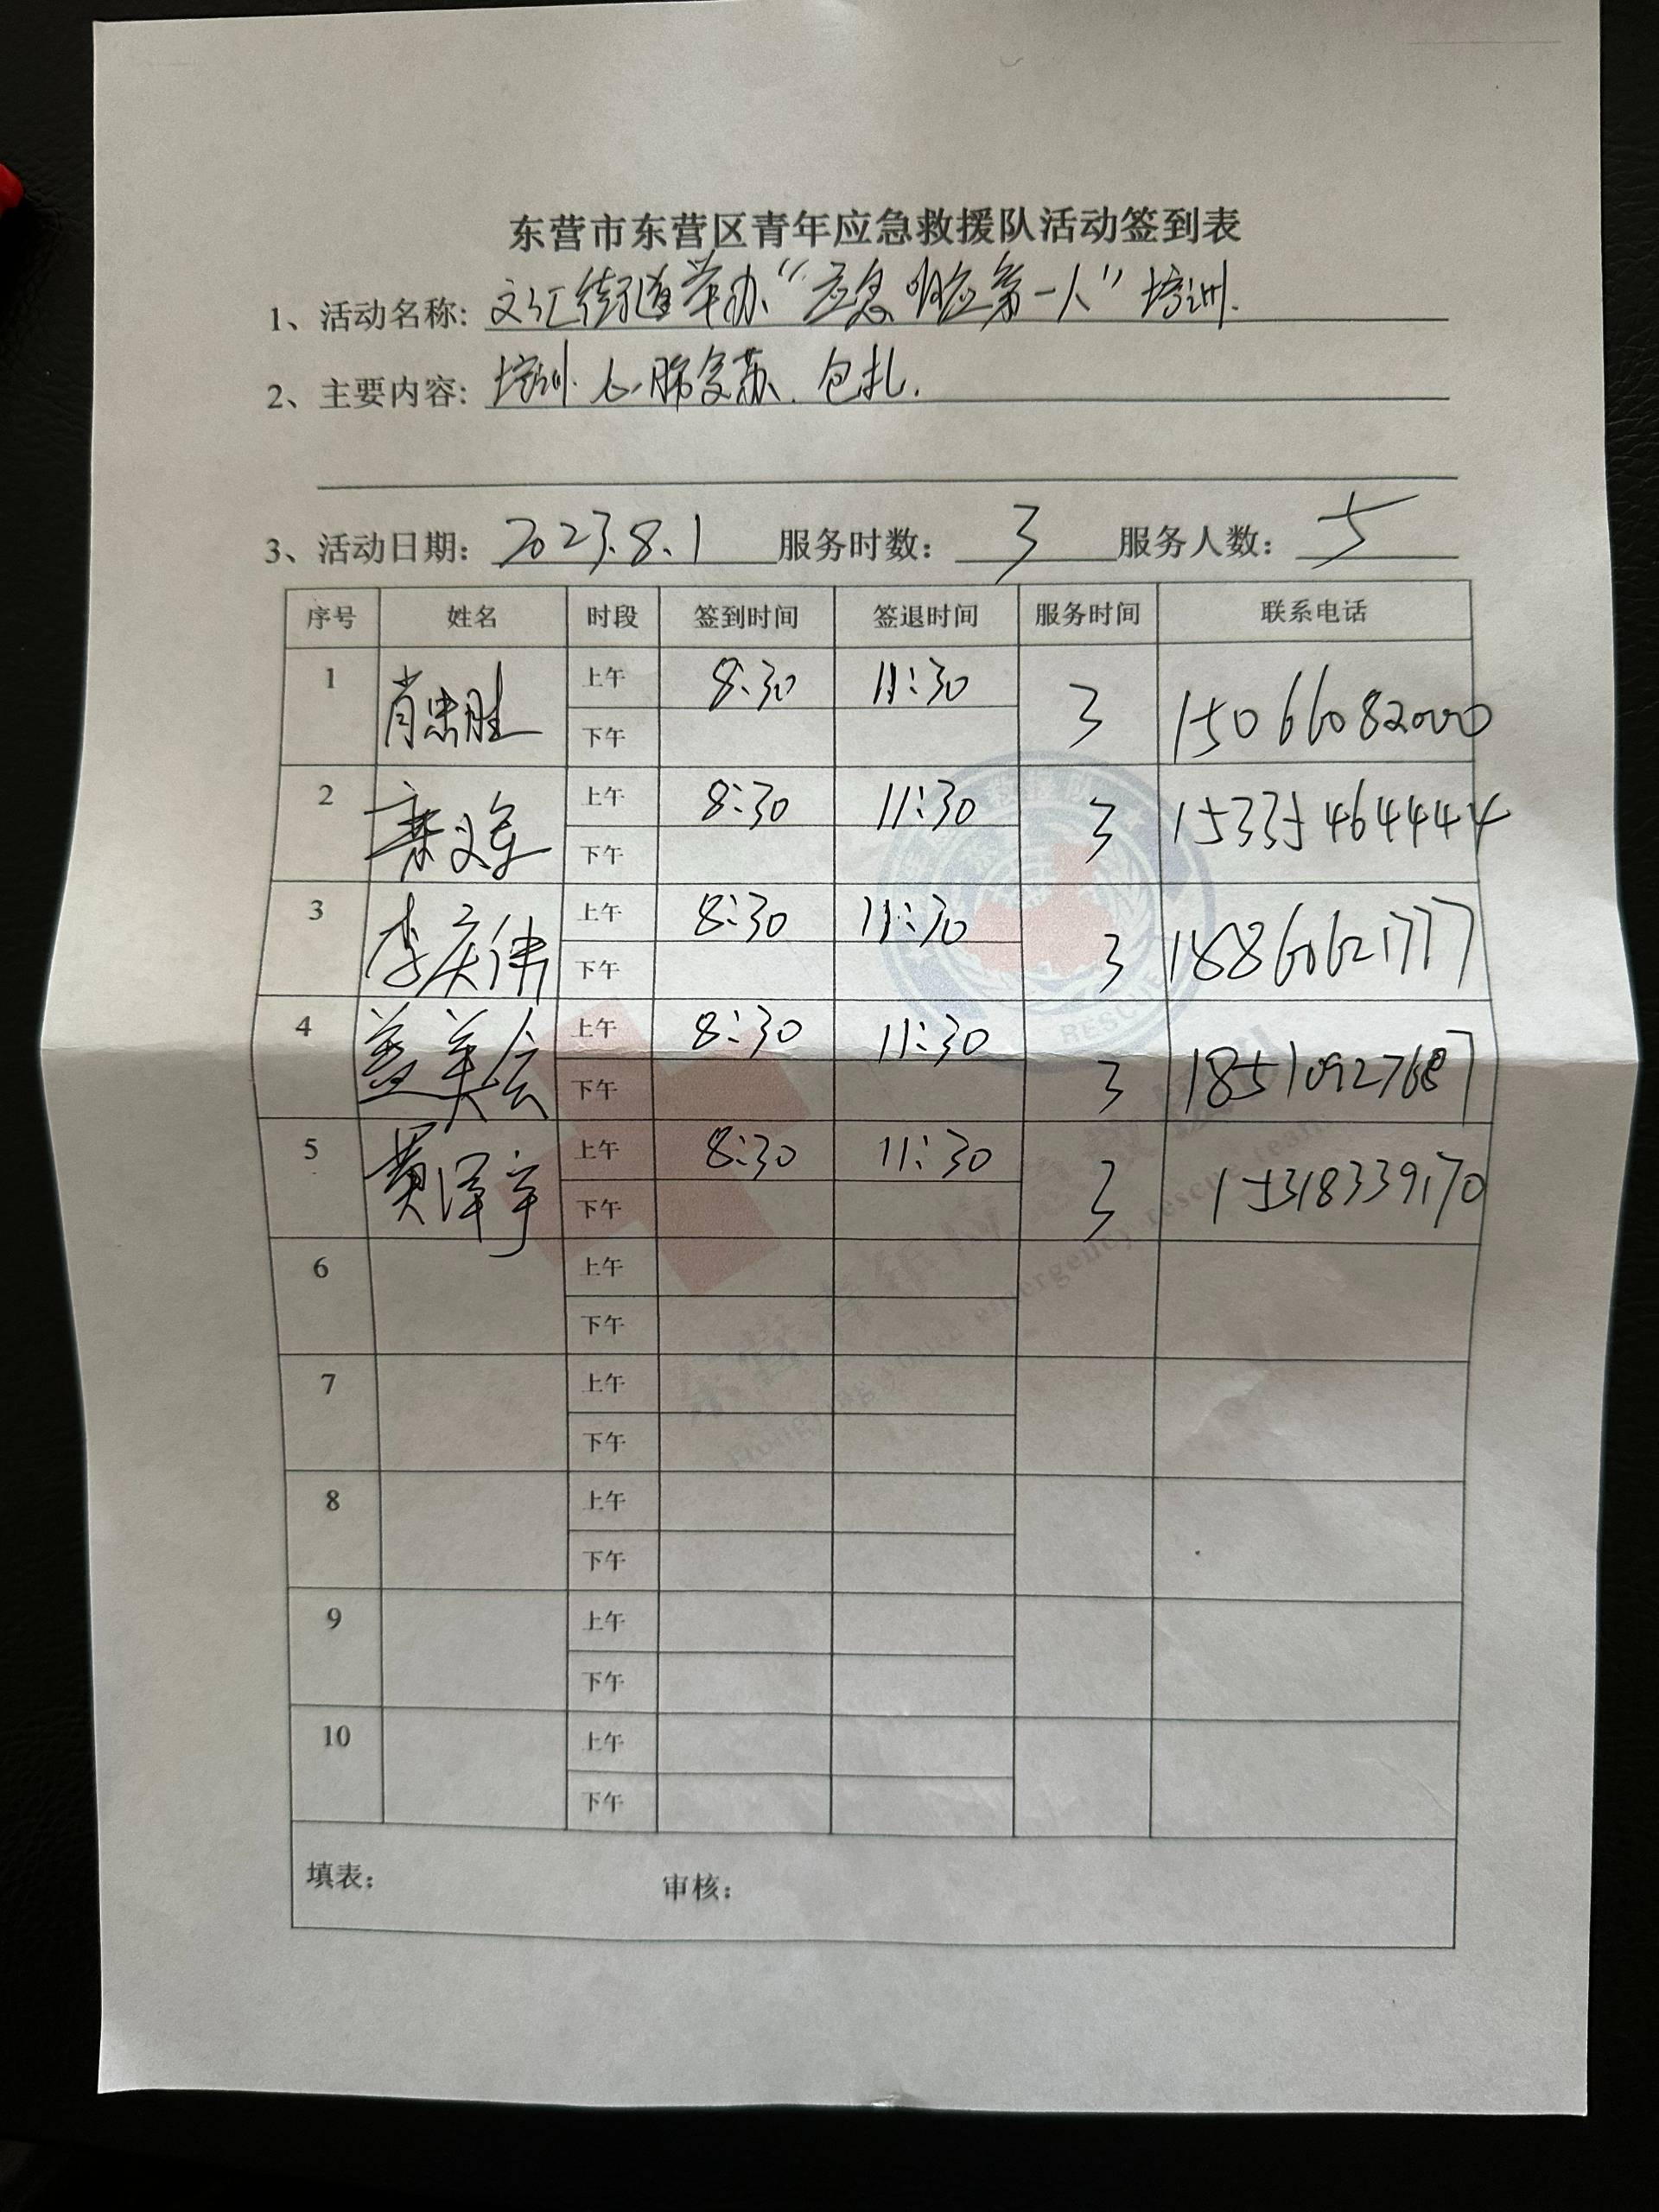 东营市东营区青年应急救援队活动签到表
1、活动名称: 文汇街道举办“应急响应第一人”培训.
2、主要内容: 培训.心肺复苏.包扎.
3、活动日期: 2023.8.1 服务时数: 3 服务人数: 5
序号 姓名 时段 签到时间 签退时间 服务时间 联系电话
1 肖忠胜 上午 8:30 11:30 3 15066082000
下午
2 上午 8:30 11:30 3 15335464444
下午
3 李庆伟 上午 8:30 11:30 3 18860621777
下午
4 盖美会 上午 8:30 11:30 3
下午
5 黄泽宇 上午 8:30 11:30 3 15318339170
下午
6 上午
下午
7 上午
下午
8 上午
下午
9 上午
下午
10 上午
下午
填表: 审核:
RESCUE